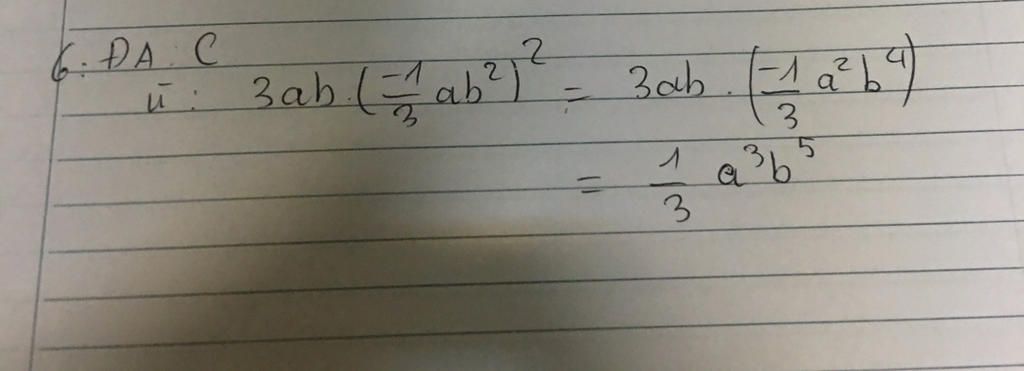 6: ĐA: C
vì: 3ab.(-1/3 ab²)² = 3ab.(-1/3 a²b⁴)
= 1/3 a³b⁵